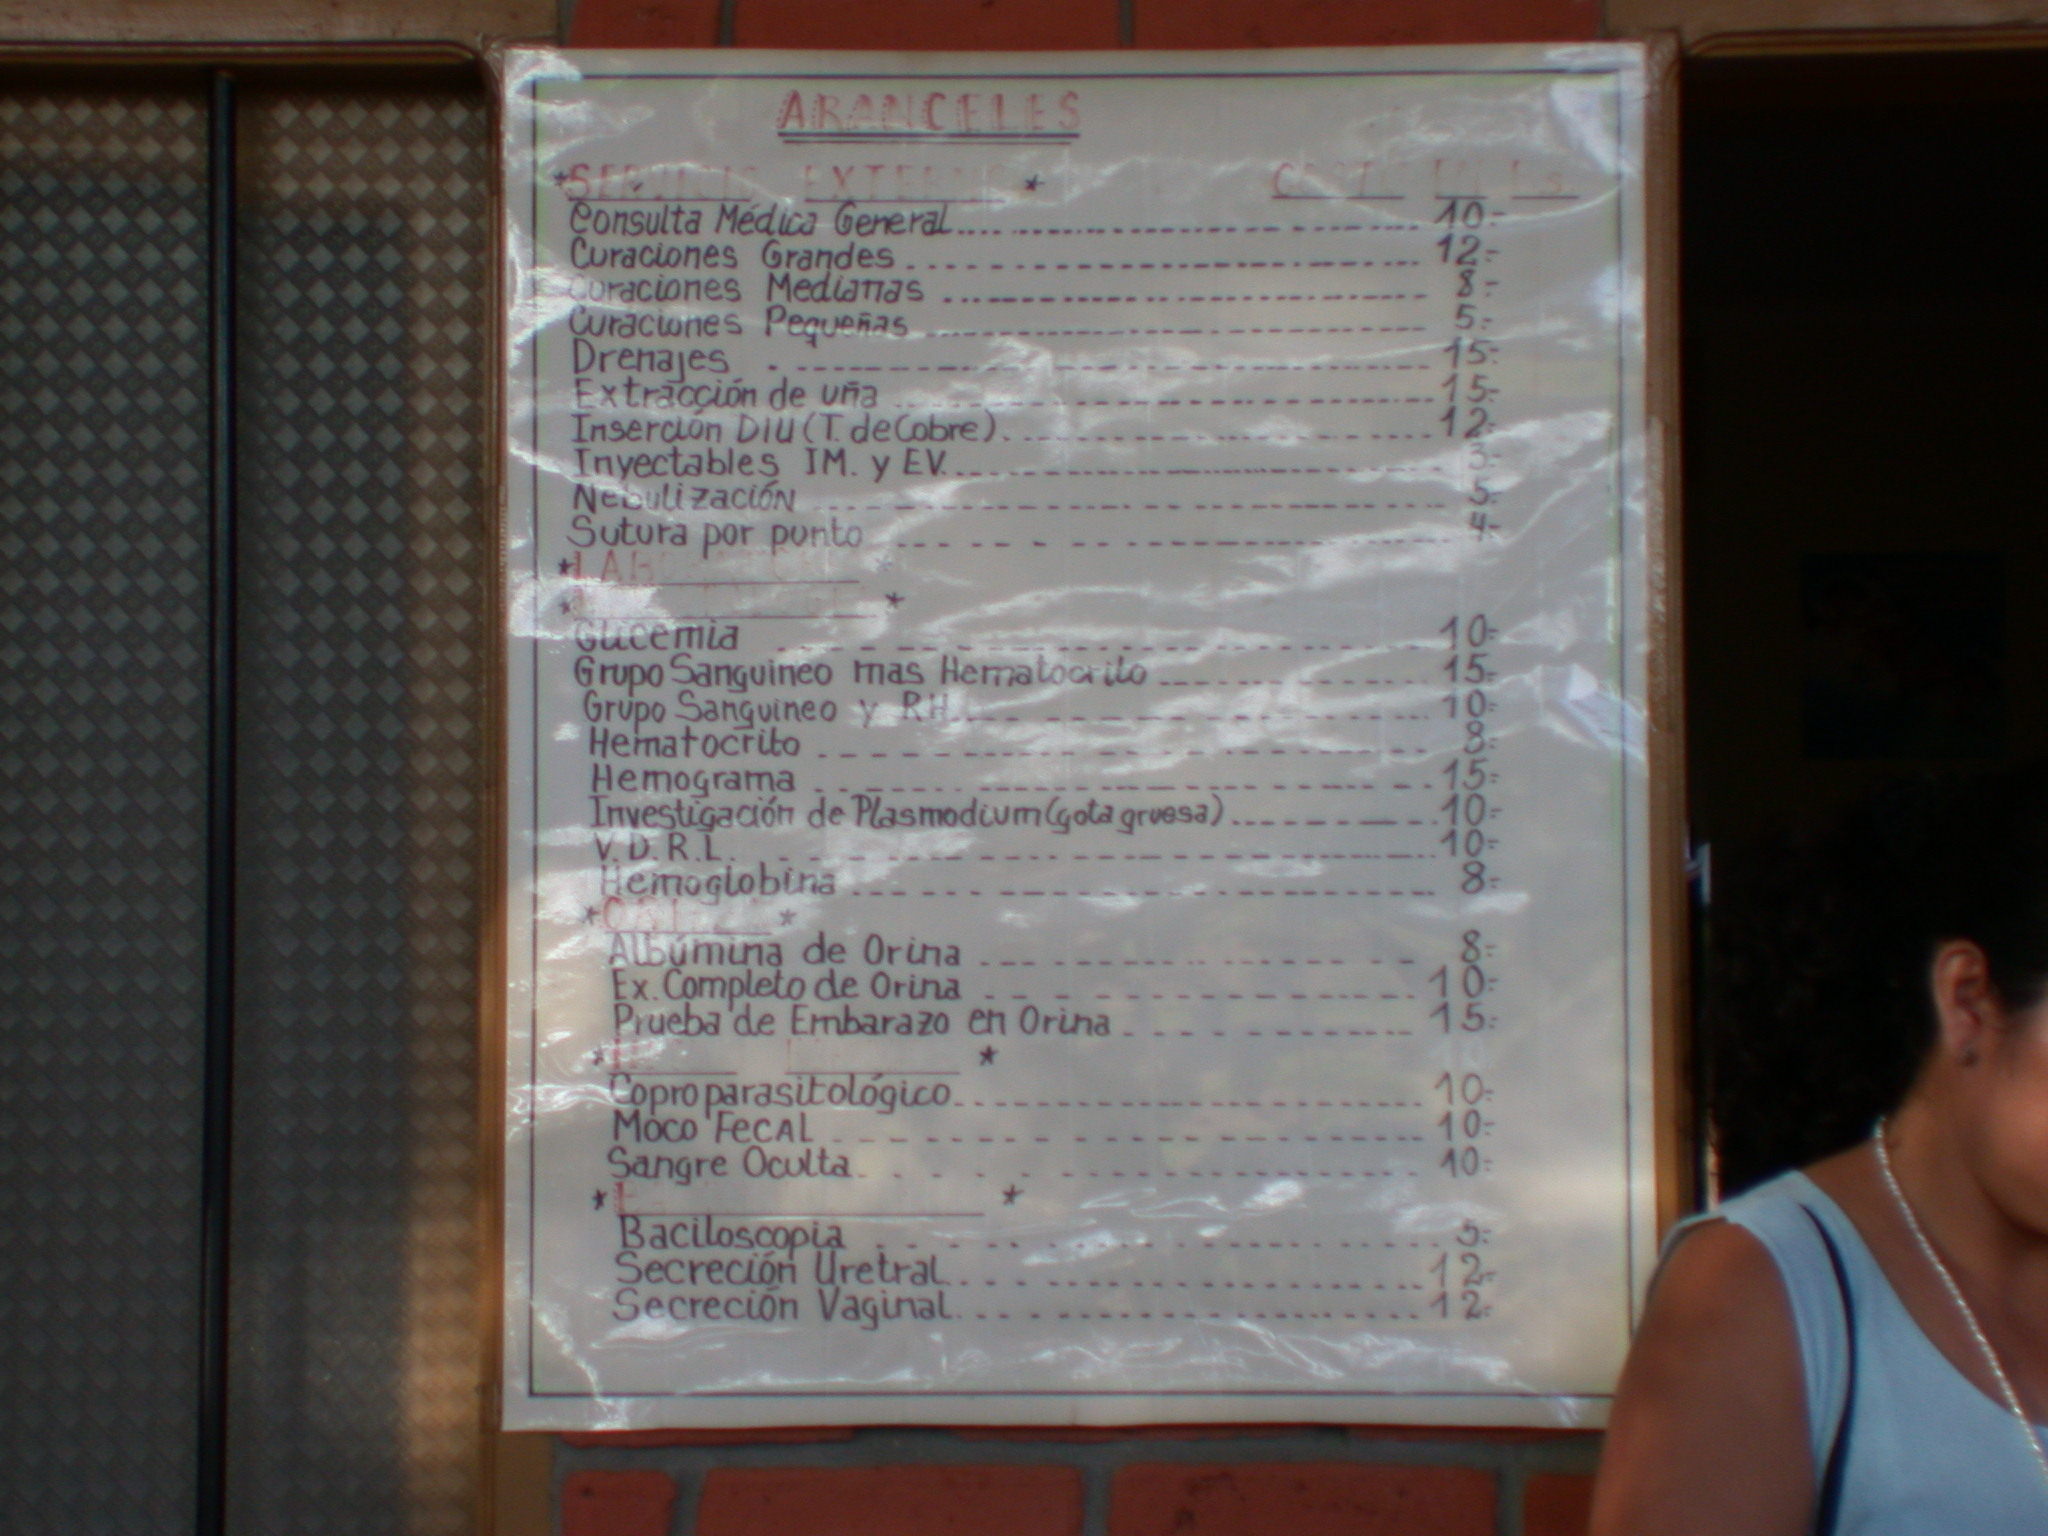 ARANCELES
*SERVICIO EXTERNO* COSTO EN Bs.
Consulta Médica General 10.-
Curaciones Grandes 12.-
Curaciones Medianas 8.-
Curaciones Pequeñas 5.-
Drenajes 15.-
Extracción de uña 15.-
Inserción DIU (T. de Cobre) 12.-
Inyectables IM. y EV. 3.-
Nebulización 5.-
Sutura por punto 4.-
*LABORATORIO*
Glicemia 10.-
Grupo Sanguineo mas Hematocrito 15.-
Grupo Sanguineo y RH 10.-
Hematocrito 8.-
Hemograma 15.-
Investigación de Plasmodium (gota gruesa) 10.-
V.D.R.L. 10.-
Hemoglobina 8.-
Albúmina de Orina 8.-
Ex. Completo de Orina 10.-
Prueba de Embarazo en Orina 15.-
Coproparasitológico 10.-
Moco Fecal 10.-
Sangre Oculta 10.-
Baciloscopia 5.-
Secreción Uretral 12.-
Secreción Vaginal 12.-